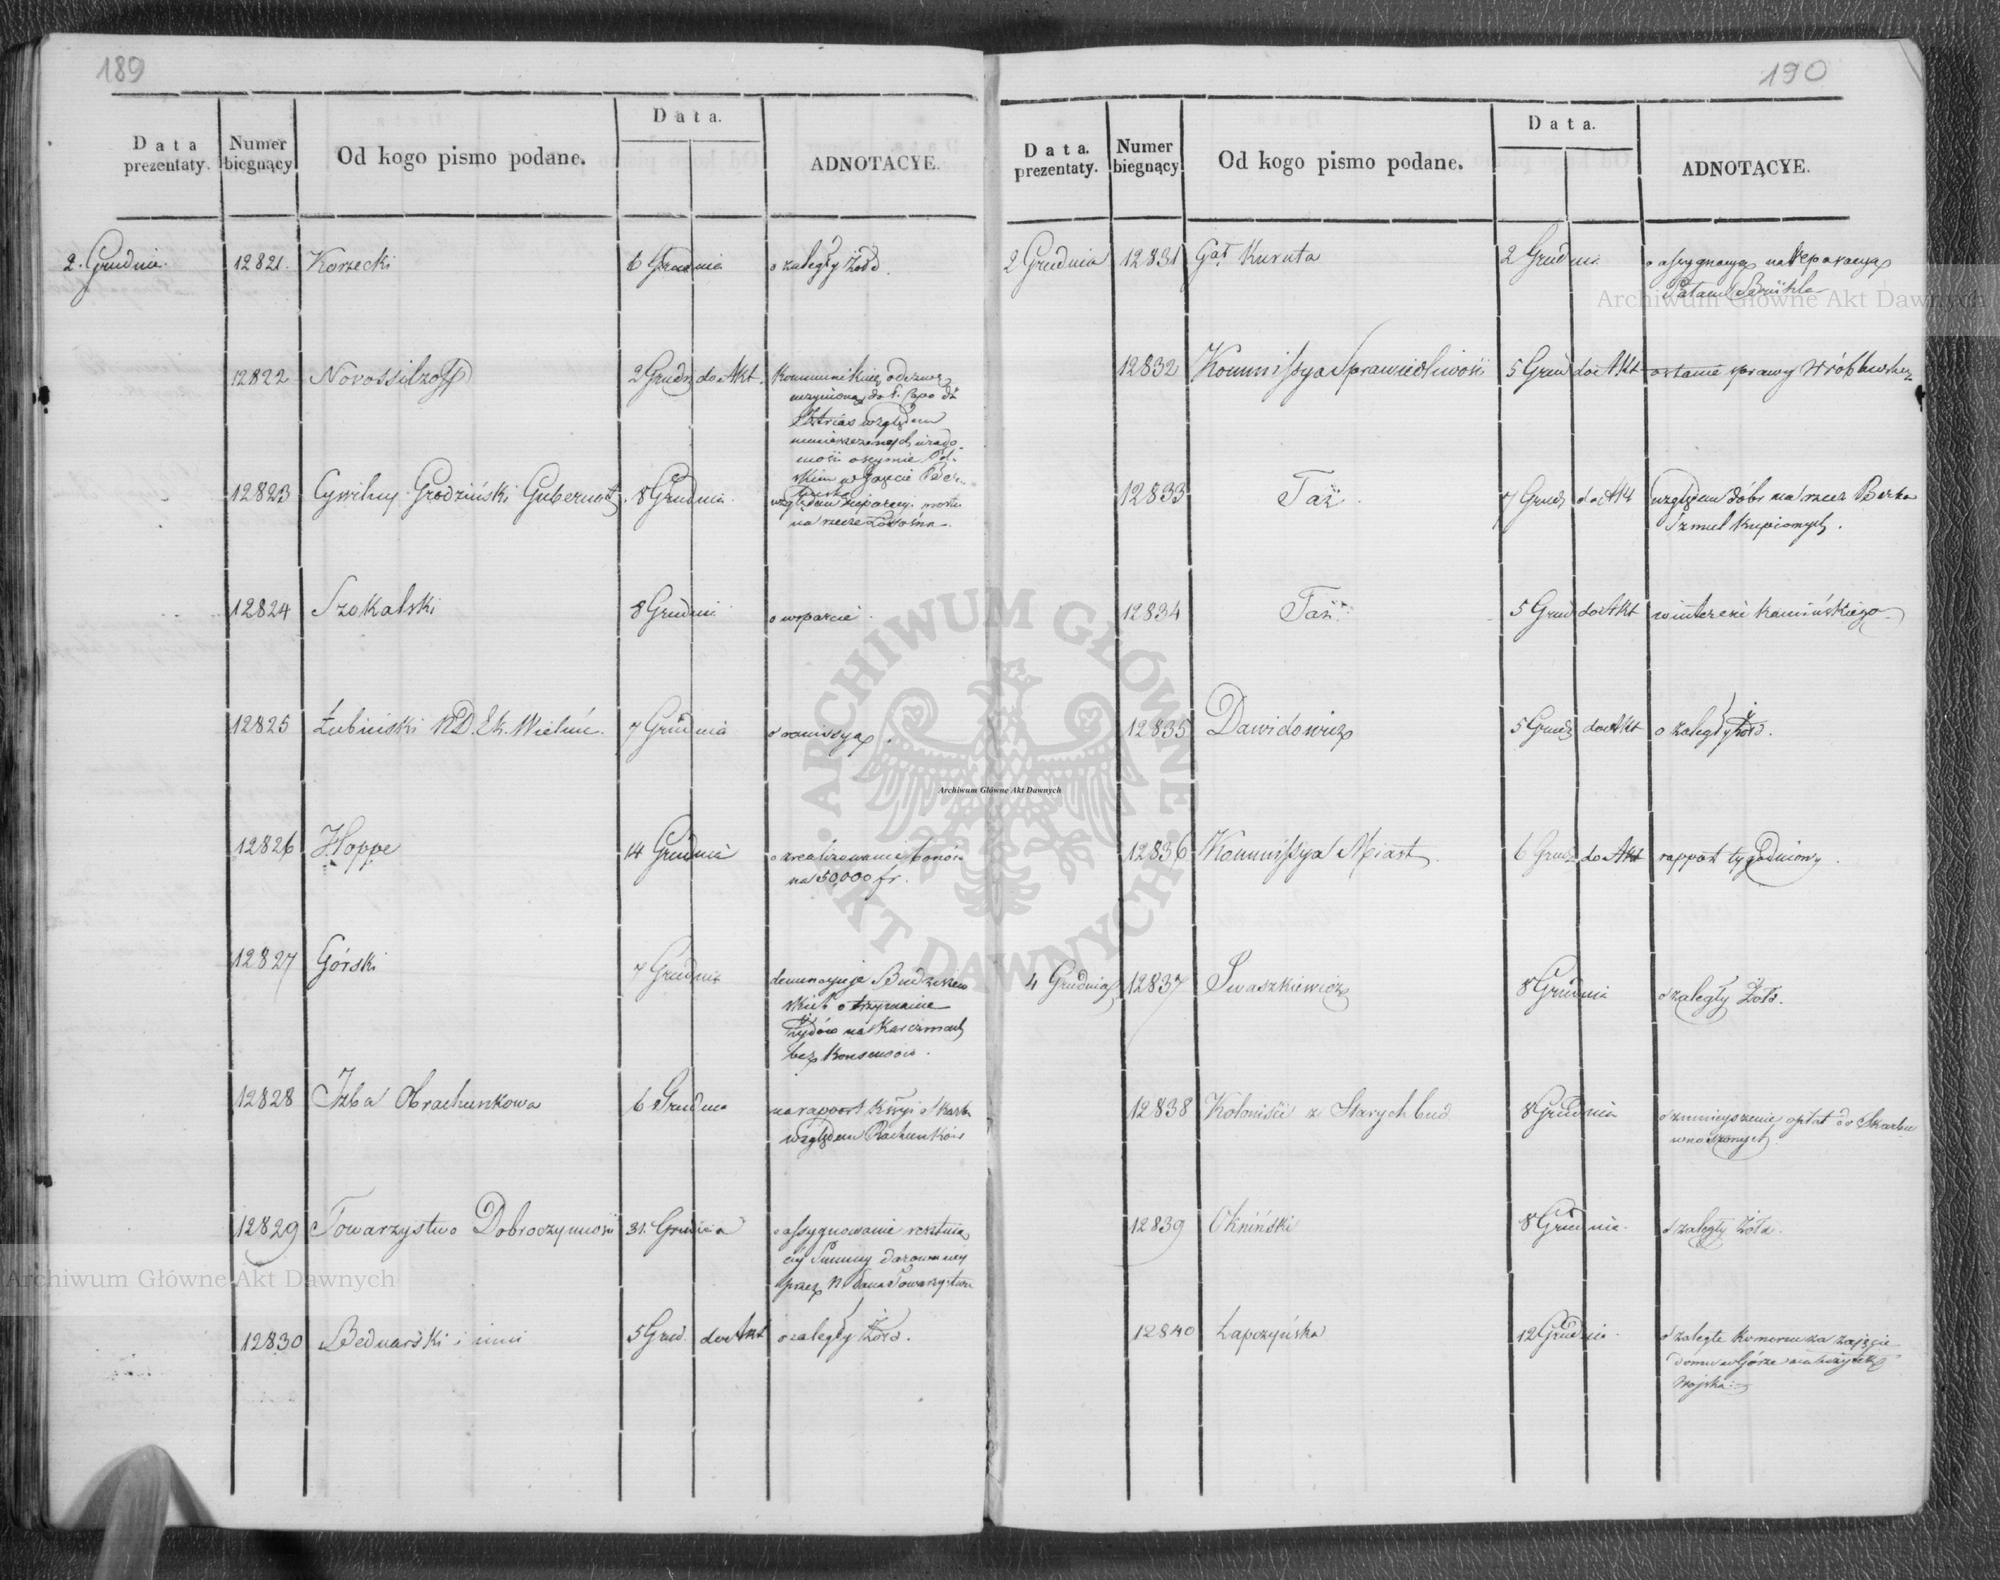 189
Data prezentaty.
Numer biegnący
Od kogo pismo podane.
Data.
ADNOTACYE.
2. Grudnia.
12821. Korzecki 6 Grudnia o zaległy żołd.
12822 Novossilzoff 2 Grudz do Akt.
względem
12823 Cywilny Grodziński Gubernat. 8 Grudnia.
na rzece Łososna.
12824 Szokalski 8 Grudnia o wsparcie.
12825 Łubiński 7 Grudnia
12826 Hoppe 14 Grudnia o zrealizowanie bonów
na 50,000 fr.
12827 Górski 7 Grudnia
o trzymanie
Żydów na Karczmach
bez Konsensów.
12828 Izba Obrachunkowa 6 Grudnia na rapport
względem Rachunków
12829 Towarzystwo Dobroczynności 31. Grudnia o assygnowanie
Summy darowaney
przez
12830 Bednarski i inni 5 Grud. do Akt o zaległy żołd.
190
Data. prezentaty.
Numer biegnący
Od kogo pismo podane.
Data.
ADNOTACYE.
2 Grudnia 12831 Kuruta 2 Grudnia o assygnacyą na Reparacyą
Pałacu Brühla
12832 Kommissya Sprawiedliwości 5 Grud do Akt sprawy
12833 Taż 7 Grudz do Akt względem dóbr na rzecz Berka
Szmul kupionych.
12834 Taż 5 Grud do Akt w interesie Kamińskiego
12835 Dawidowicz 5 Grudz do Akt o zaległy żołd.
12836 Kommissya Miast 6 Grudz do Akt rapport tygodniowy.
4 Grudnia 12837 Iwaszkiewicz 8 Grudnia o zaległy żołd.
12838 Koloniści z Starych bud 8 Grudnia o zmnieyszenie opłat do Skarbu
wnoszonych
12839 Okniński 8 Grudnia o zaległy żołd.
12840 Łapczyńska 12 Grudnia o zaległe Komorne za zajęcie
domu w Górze na użytek
Woyska
Archiwum Główne Akt Dawnych
Archiwum Główne Akt Dawnych
Archiwum Główne Akt Dawnych
ARCHIWUM GŁÓWNE AKT DAWNYCH